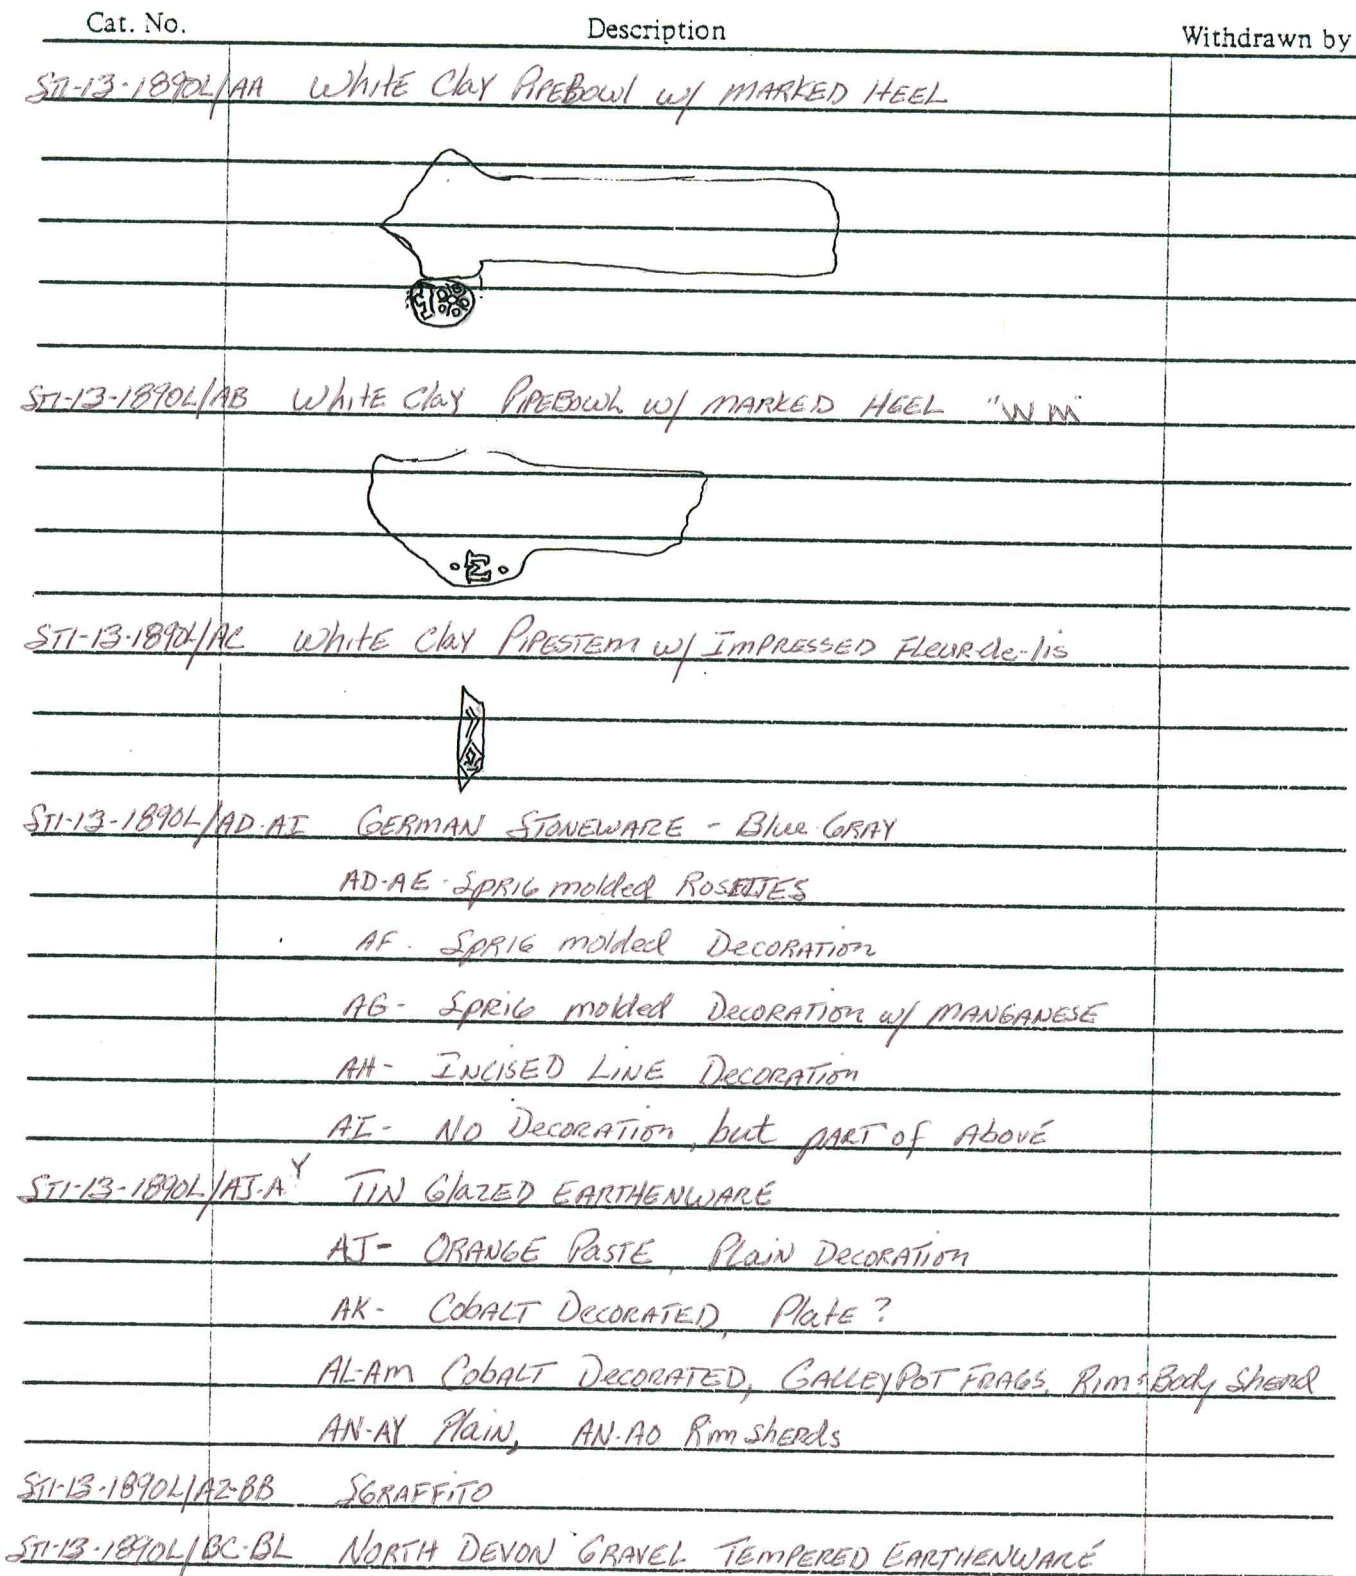 Cat. No. Description Withdrawn by
ST1-13-1890L/AA White Clay PipeBowl w/ MARKED HEEL
ST1-13-1890L/AB White Clay PipeBowl w/ MARKED HEEL "WM"
ST1-13-1890L/AC White Clay Pipestem w/ IMPRESSED Fleur-de-lis
ST1-13-1890L/AD-AI GERMAN STONEWARE - Blue-GRAY
AD-AE- Sprig molded Rosettes
AF- Sprig molded Decoration
AG- Sprig molded Decoration w/ MANGANESE
AH- INCISED LINE Decoration
AI- No Decoration, but part of Above
ST1-13-1890L/AJ-AY TIN Glazed EARTHENWARE
AJ- ORANGE Paste, Plain Decoration
AK- Cobalt Decorated, Plate?
AL-AM Cobalt Decorated, GALLEYPOT FRAGS. Rim & Body Sherd
AN-AY Plain, AN-AO Rim sherds
ST1-13-1890L/AZ-BB SGRAFFITO
ST1-13-1890L/BC-BL NORTH DEVON GRAVEL TEMPERED EARTHENWARE